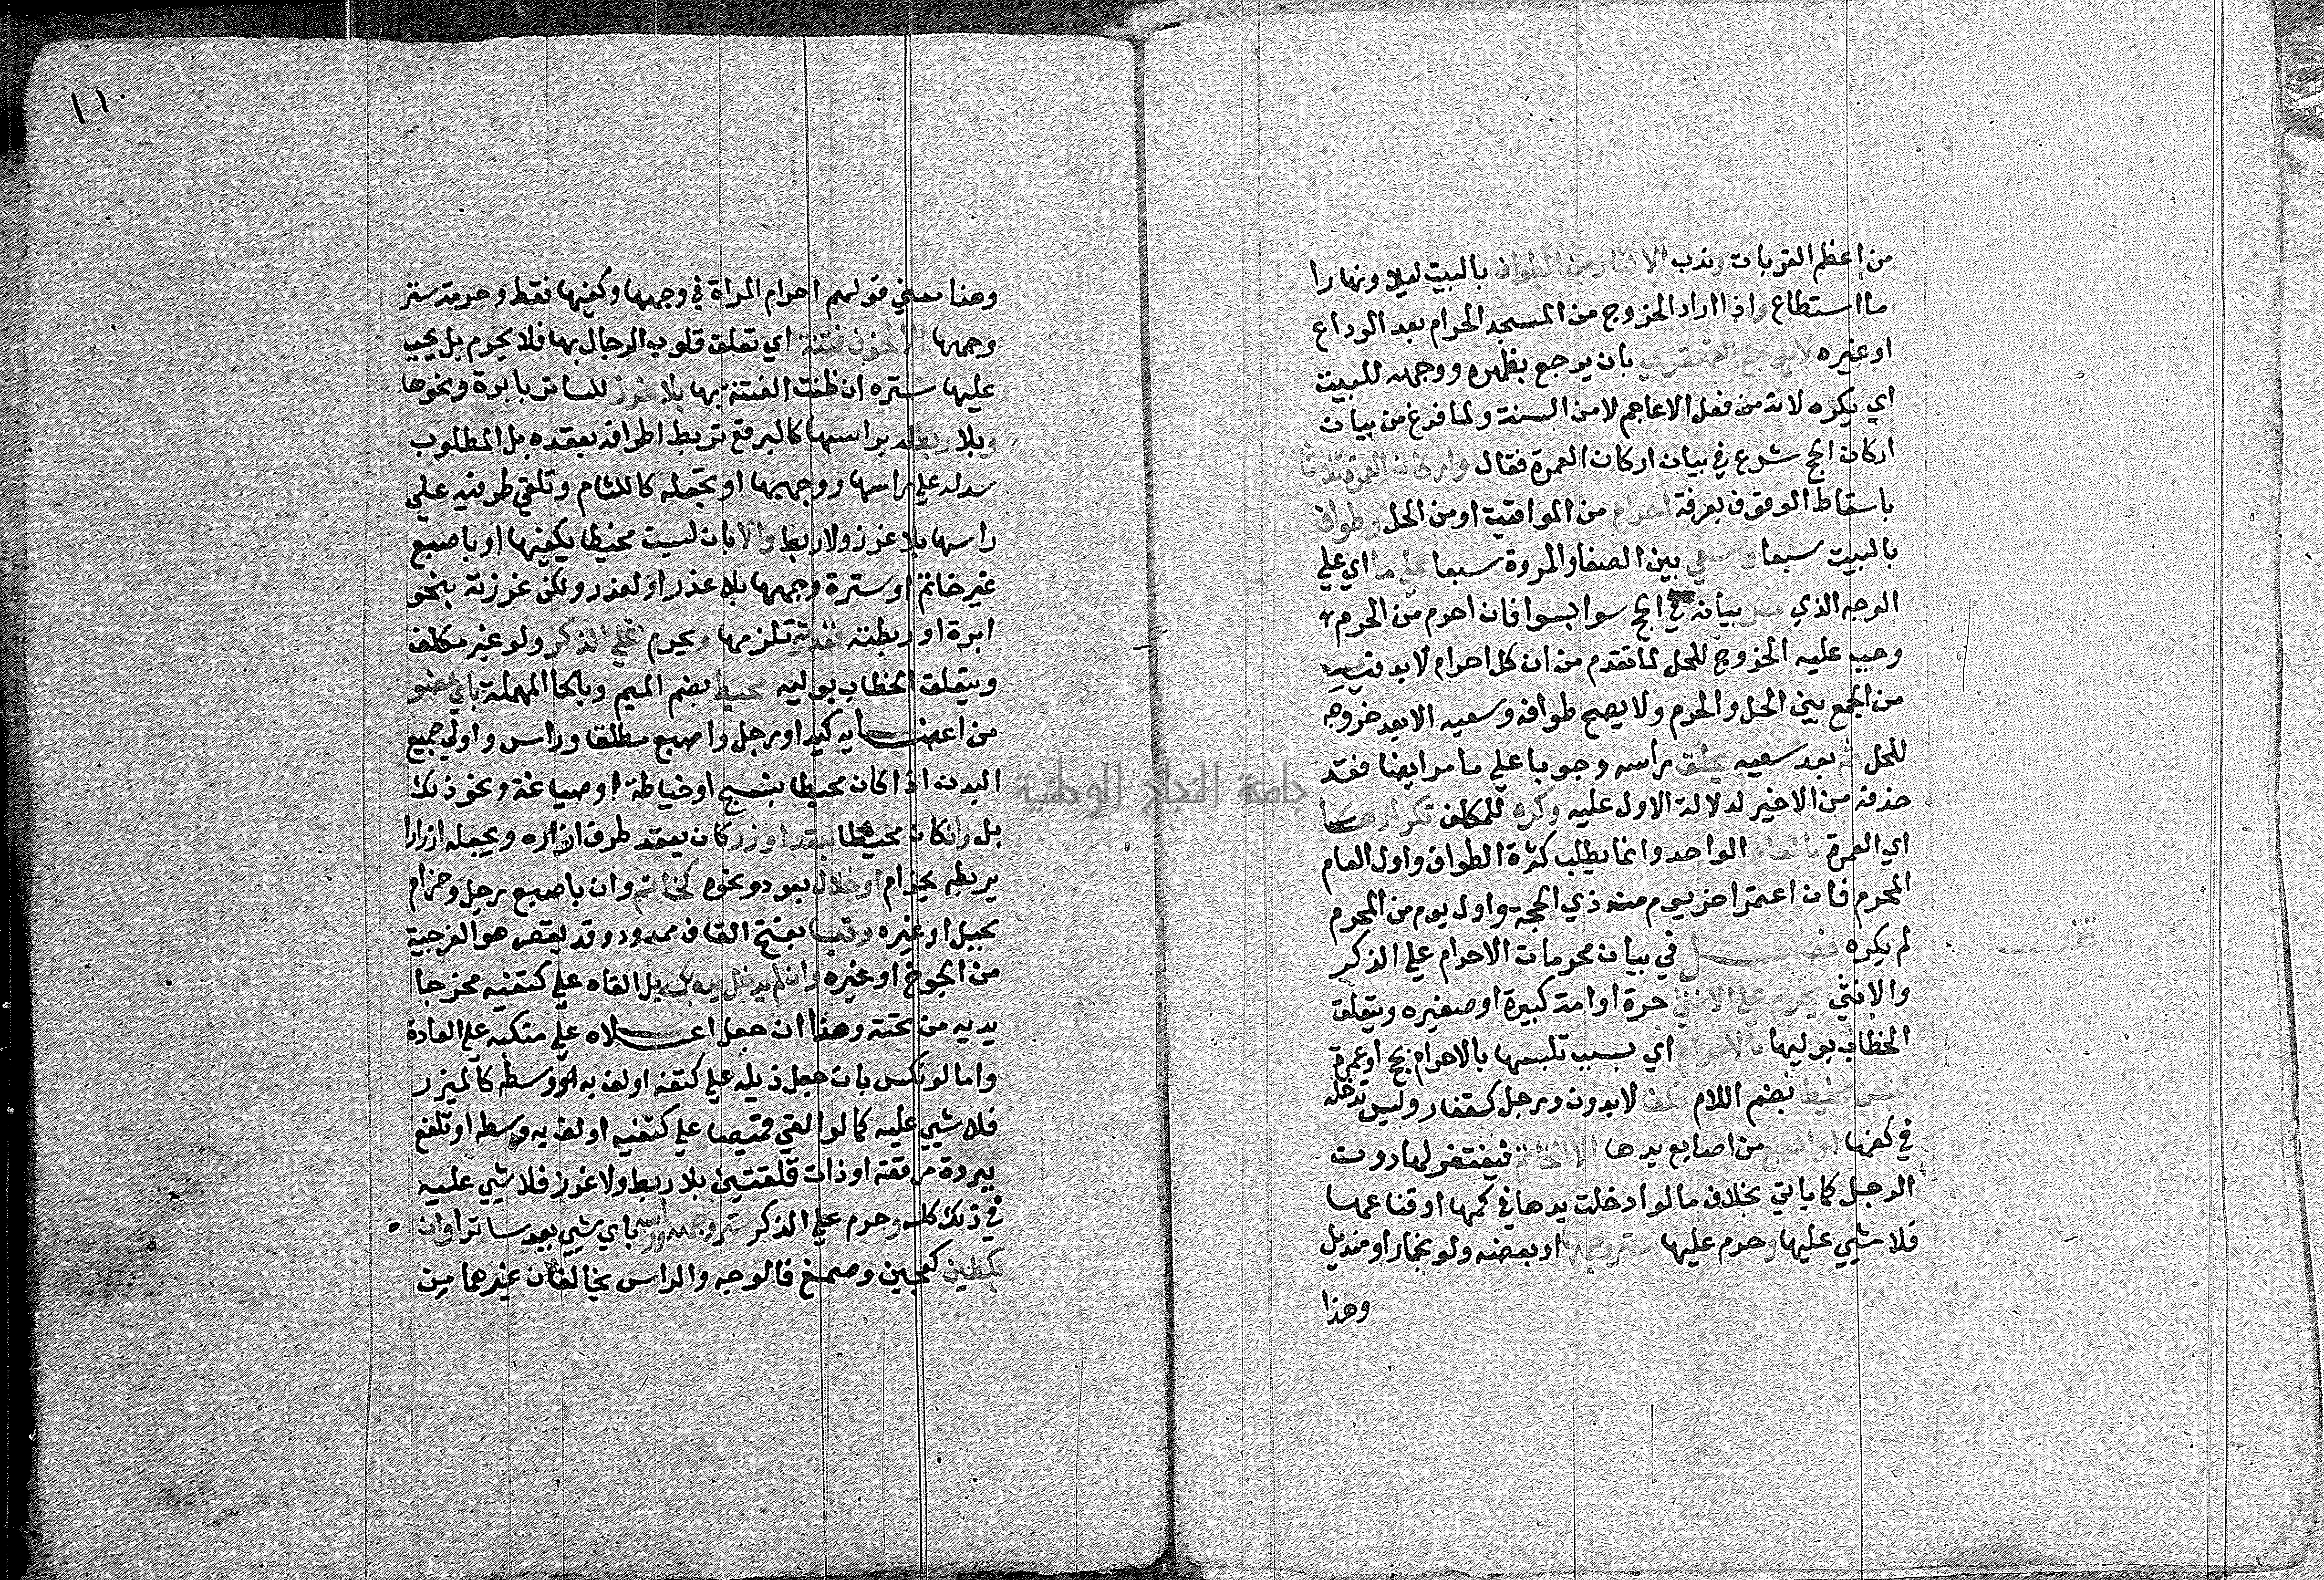 من اعظم القربات وندب الاكثار من الطواف بالبيت ليلا ونهارا
ما استطاع واذا اراد الخروج من المسجد الحرام بعد الوداع
او غيره لا يرجع القهقري بان يرجع بظهره ووجهه للبيت
اي يكره لانه من فعل الاعاجم لا من السنة ولما فرغ من بيان
اركان الحج شرع في بيان اركان العمرة فقال واركان العمرة ثلاثا
باسقاط الوقوف بعرفة احرام من المواقيت او من الحل وطواف
بالبيت سبعا وسعي بين الصفا والمروة سبعا علي ما اي علي
الوجه الذي مر بيانه في الحج سوا بسوا فان احرم من الحرم
وجب عليه الخروج للحل لما تقدم من ان كل احرام لا بد فيه
من الجمع بين الحل والحرم ولا يصح طوافه وسعيه الا بعد خروجه
للحل ثم بعد سعيه يحلق راسه وجوبا علي ما مر ايضا فقد
حذفه من الاخير لدلالة الاول عليه وكره للمكلف تكرارها
اي العمرة بالعام الواحد وانما يطلب كثرة الطواف واول العام
المحرم فان اعتمر اخر يوم منه ذي الحجة واول يوم من المحرم
لم يكره فصل في بيان محرمات الاحرام علي الذكر
والانثي يحرم علي الانثي حرة او امة كبيرة او صغيره ويتعلق
الخطاب بوليها بالاحرام اي بسبب تلبسها بالاحرام بحج او عمرة
لبس محيط بضم اللام بكف لا بدن ورجل كقفاز وليس تدخله
في كفها او اصبع من اصابع يدها الا الخاتم فيغتفر لها دون
الرجل كما ياتي بخلاف ما لو ادخلت يدها في كمها او قناعها
فلا شيي عليها وحرم عليها ستر وجهها او بعضه ولو بخمار او منديل
وهذا
قف
١١٠
وهذا معني قولهم احرام المراة في وجهها وكفيها فقط وحرمة ستر
وجهها الا لخوف فتنة اي تعلق قلوب الرجال بها فلا يحرم بل يجب
عليها ستره ان ظنت الفتنة بها بلا غرز للساتر بابرة ونحوها
وبلا ربط له براسها كالبرقع تربط اطرافه بعقده بل المطلوب
سدله علي راسها ووجهها او تجعله كاللثام وتلقي طرفيه علي
راسها بلا غرز ولا ربط والا بان لبست محيطا بكفيها او باصبع
غير خاتم او سترة وجهها بلا عذر او لعذر ولكن غرزته بنحو
ابرة او ربطته ففدية تلزمها ويحرم علي الذكر ولو غير مكلف
ويتعلق الخطاب بوليه محيط بضم الميم وبالحا المهملة باي عضو
من اعضايه كيد او رجل واصبع مطلقا وراس واولي جميع
البدن اذا كان محيطا بنسج او خياطة او صياغة ونحو ذلك
بل وان كان محيطا بعقد او زر كان يعقد طرف ازاره ويجعله ازرارا
يربطه بحزام او خلال بعود ونحوه كخاتم وان باصبع رجل وحزام
بحبل او غيره وقبا بفتح القاف ممدود وقد يقصر هو الفرجية
من الجوخ او غيره وان لم يدخل يده بكمه بل القاه علي كتفيه مخرجا
يديه من تحته وهذا ان جعل اعلاه علي منكبيه علي العادة
واما لو نكس بان جعل ذيله علي كتفه او لف به وسطه كالميزر
فلا شيي عليه كما لو القي قميصا علي كتفيه او لف به وسطه او تلفع
ببردة مرقعة او ذات فلقتين بلا ربط ولا غرز فلا شيي عليه
في ذلك كله وحرم علي الذكر ستر وجهه وراسه باي شيي يعد ساترا وان
كطين كعجين وصمغ فالوجه والراس يخالفان غيرهما من
جامعة النجاح الوطنية